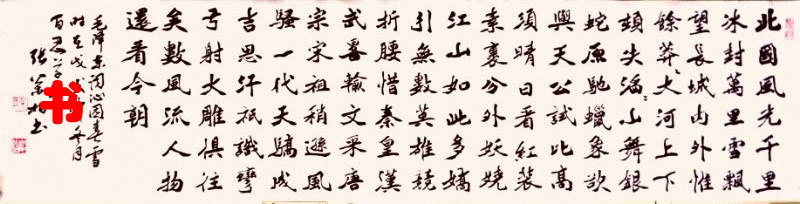 北國風光千里
冰封萬里雪飄
望長城內外惟
餘莽〻大河上下
頓失滔〻山舞銀
蛇原馳蠟象欲
與天公試比高
須晴日看紅裝
素裹分外妖嬈
江山如此多嬌
引無數英雄競
折腰惜秦皇漢
武畧輸文采唐
宗宋祖稍遜風
騷一代天驕成
吉思汗祇識彎
弓射大雕俱往
矣數風流人物
還看今朝
毛澤東詞沁園春雪
時在戊冬月
百忍
张书
书